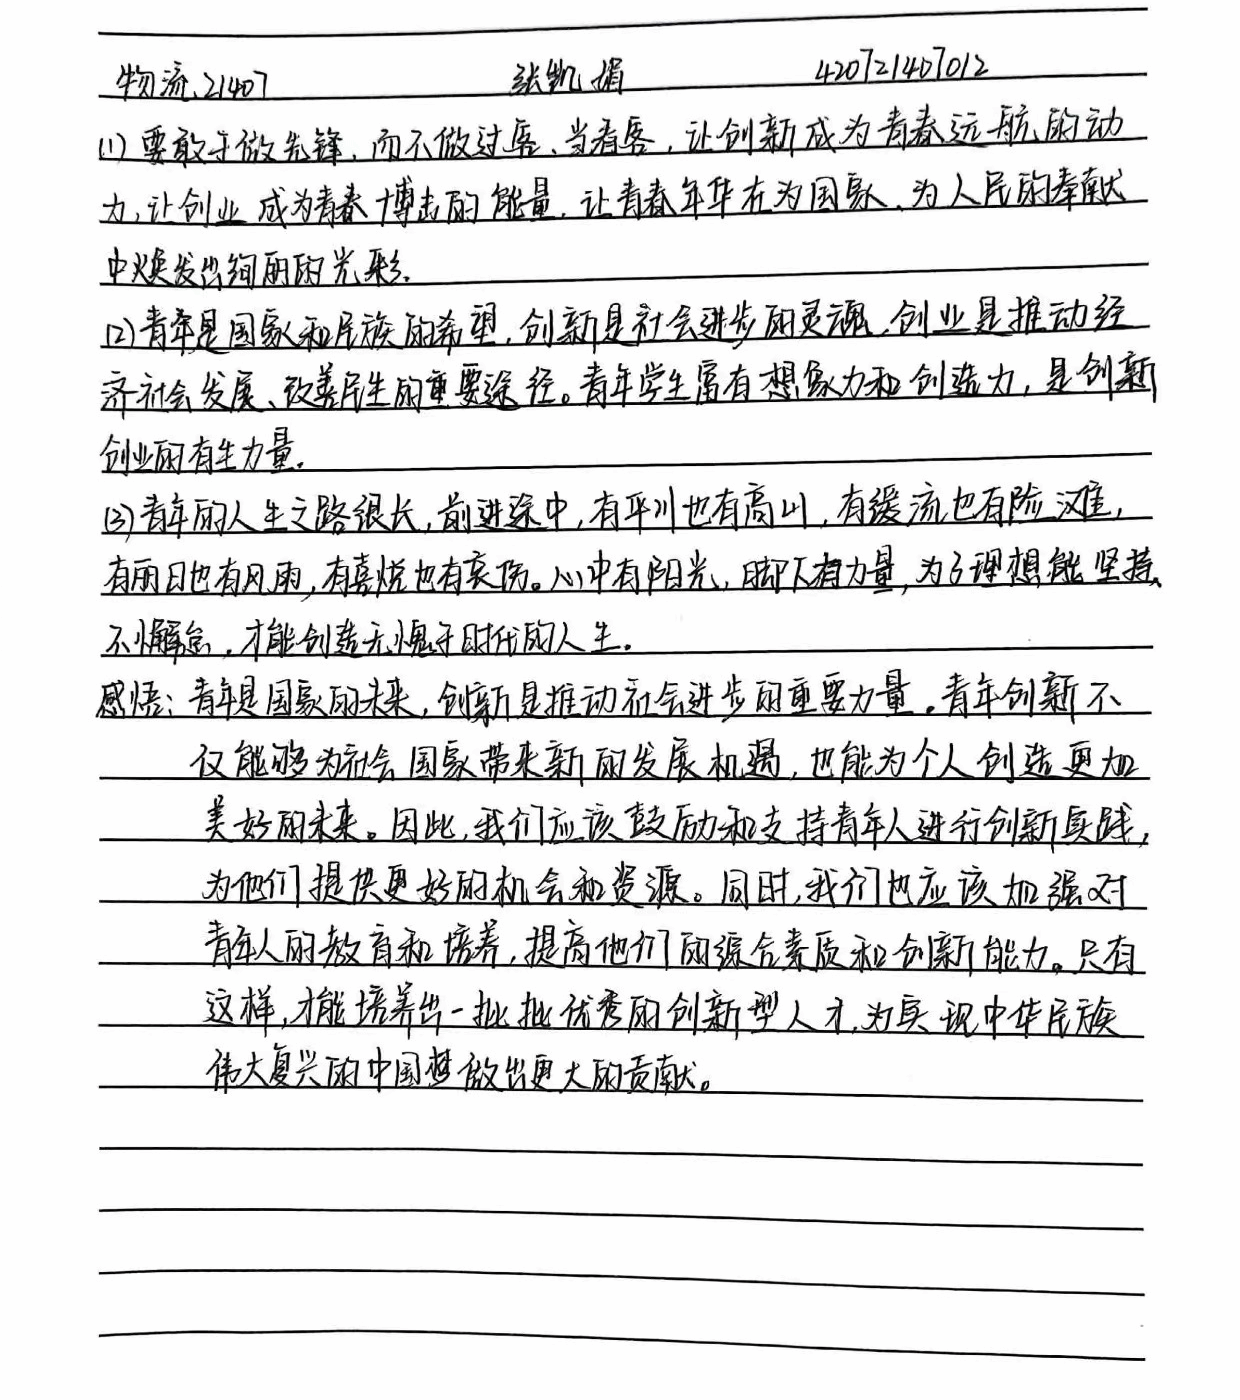 物流21407 张凯娟 420721407012
(1)要敢于做先锋，而不做过客、当看客，让创新成为青春远航的动
力，让创业成为青春搏击的能量，让青春年华在为国家、为人民的奉献
中焕发出绚丽的光彩。
(2)青年是国家和民族的希望，创新是社会进步的灵魂，创业是推动经
济社会发展、改善民生的重要途径。青年学生富有想象力和创造力，是创新
创业的有生力量。
(3)青年的人生之路很长，前进途中，有平川也有高山，有缓流也有险滩，
有丽日也有风雨，有喜悦也有哀伤。心中有阳光，脚下有力量，为了理想能坚持、
不懈怠，才能创造无愧于时代的人生。
感悟：青年是国家的未来，创新是推动社会进步的重要力量。青年创新不
仅能够为社会国家带来新的发展机遇，也能为个人创造更加
美好的未来。因此，我们应该鼓励和支持青年人进行创新实践，
为他们提供更好的机会和资源。同时，我们也应该加强对
青年人的教育和培养，提高他们的综合素质和创新能力。只有
这样，才能培养出一批批优秀的创新型人才，为实现中华民族
伟大复兴的中国梦做出更大的贡献。